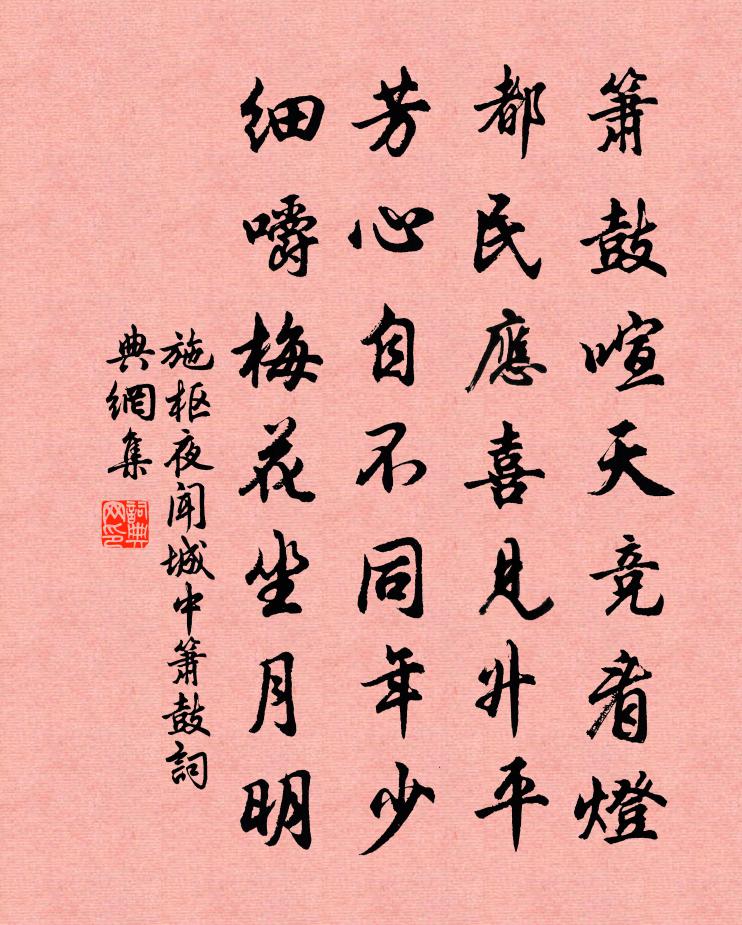 簫鼓喧天竞看燈
都民應喜見升平
芳心自不同年少
细嚼梅花坐月明
施枢夜闻城中簫鼓詞
典網集
詞典
网印